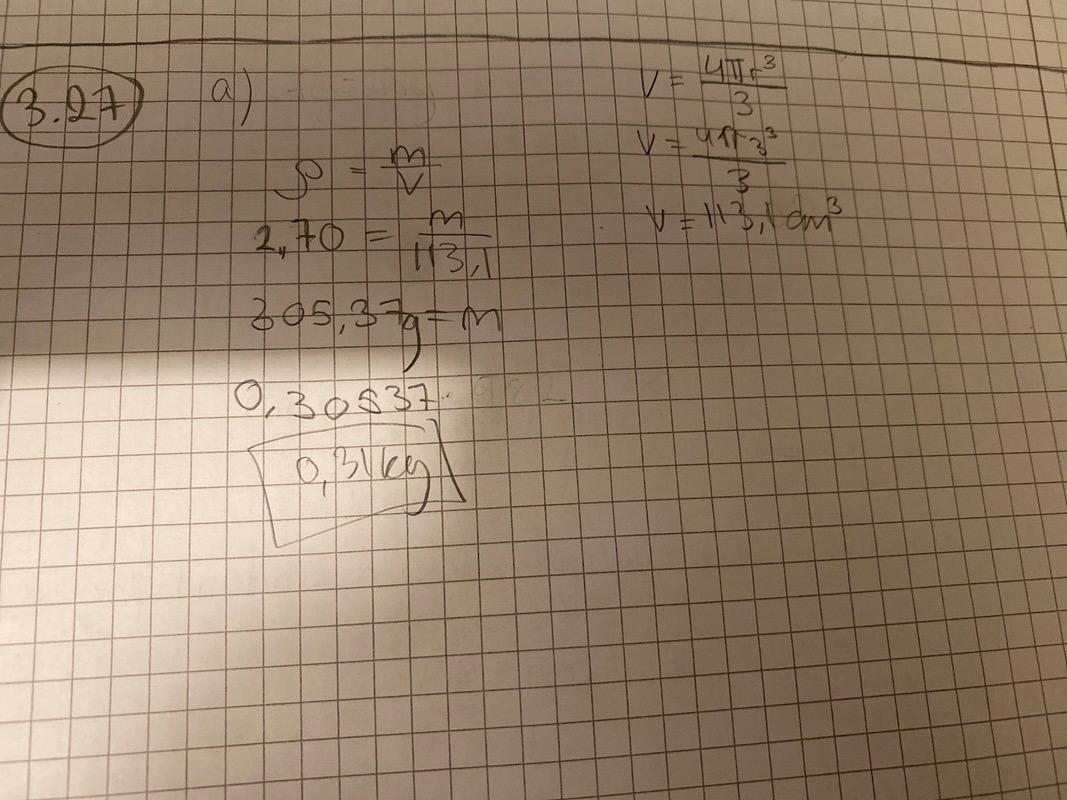 3.27 a)
ρ = m/V
2,70 = m/113,1
305,37g = m
0,30537
0,31kg
V = 4πr³/3
V = 4π3³/3
V = 113,1 cm³